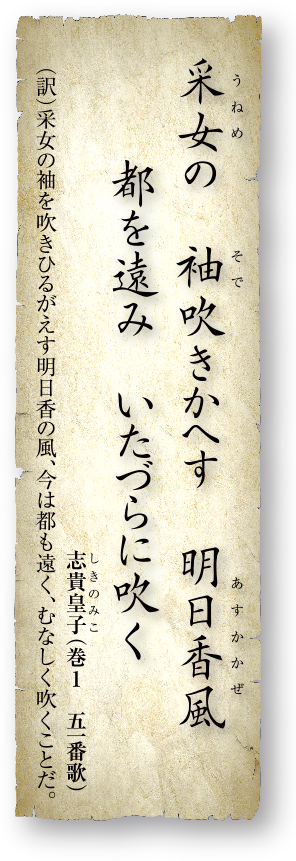 采女の 袖吹きかへす 明日香風
うねめ そで あすかかぜ
都を遠み いたづらに吹く
志貴皇子(巻1 五一番歌)
しきのみこ
(訳)采女の袖を吹きひるがえす明日香の風、今は都も遠く、むなしく吹くことだ。